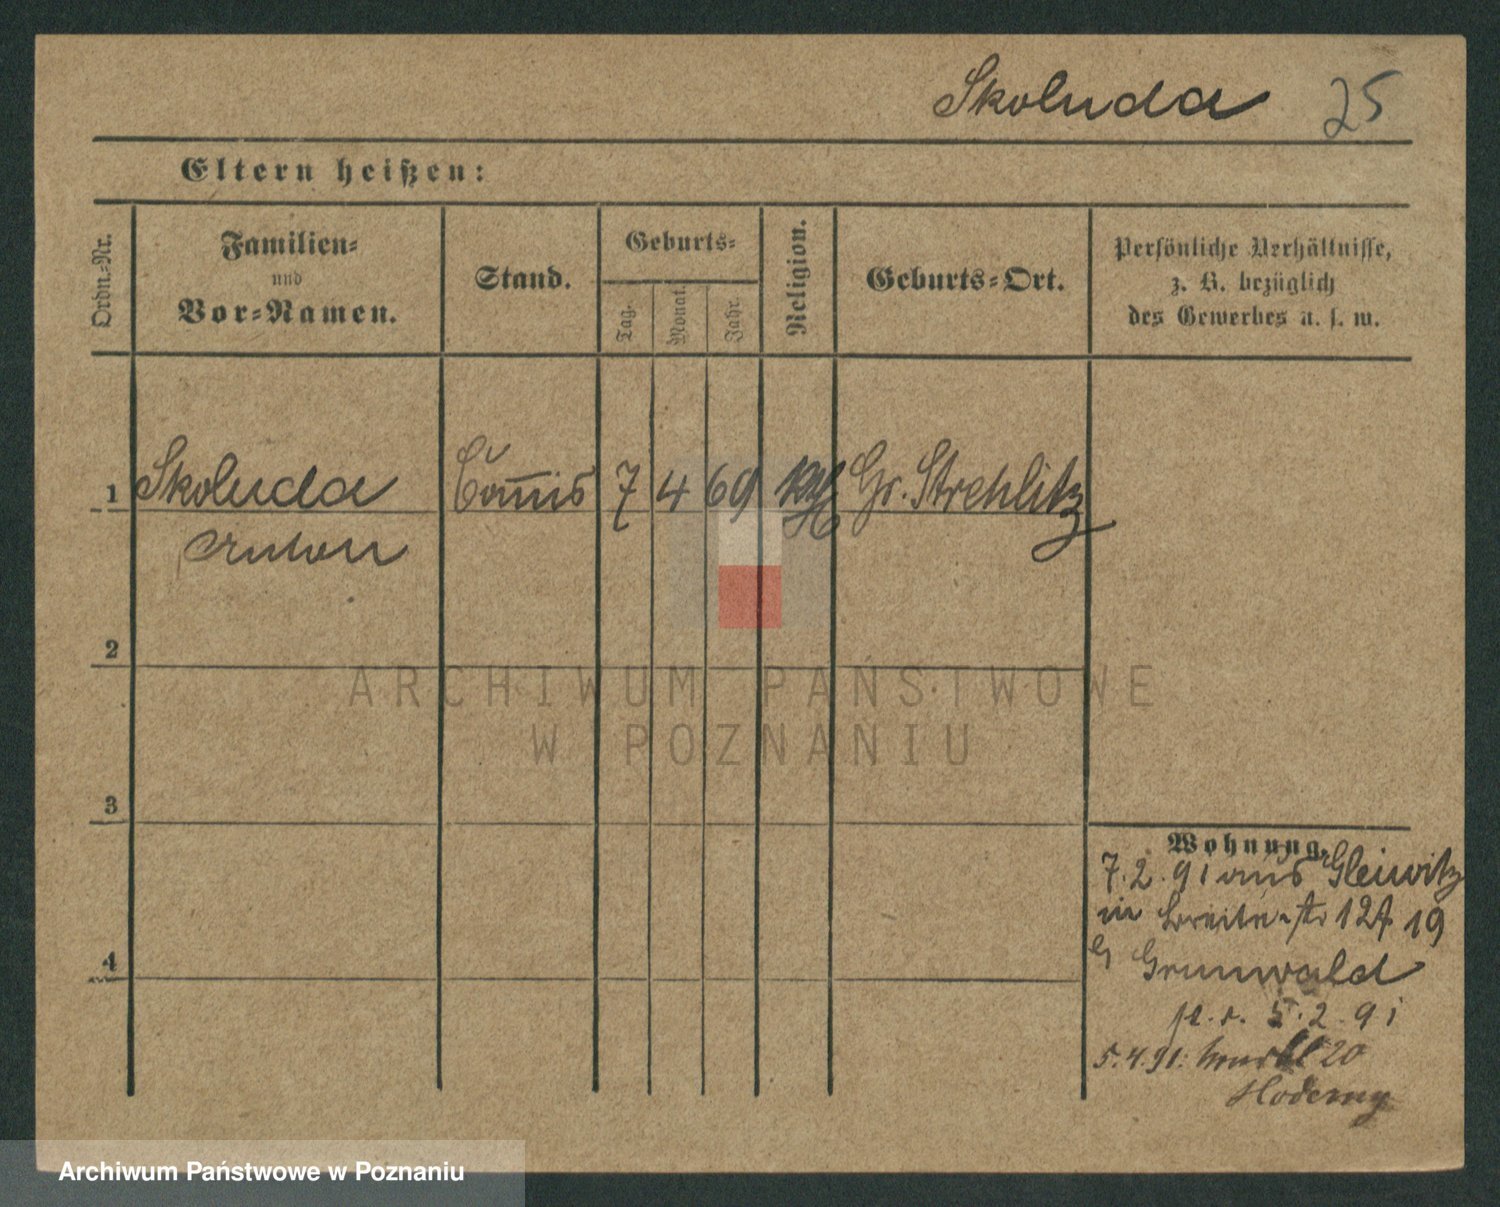 Skoluda 25
Eltern heißen:
Ordn.-Nr.
Familien-
und
Vor-Namen.
Stand.
Geburts-
Tag.
Monat.
Jahr.
Religion.
Geburts-Ort.
Persönliche Verhältnisse,
z. B. bezüglich
des Gewerbes u. s. w.
1 Skoluda Com̅is 7 4 69 kth Gr. Strehlitz
Anton
2
3
4
Wohnung.
7.2.91 aus Gleiwitz
in Breite-str 19
Grunwald
5.2.91
5.4.91: 20
ARCHIWUM PAŃSTWOWE
W POZNANIU
Archiwum Państwowe w Poznaniu